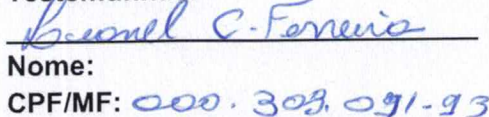 C. Ferreira
Nome:
CPF/MF: 000.303.091-93